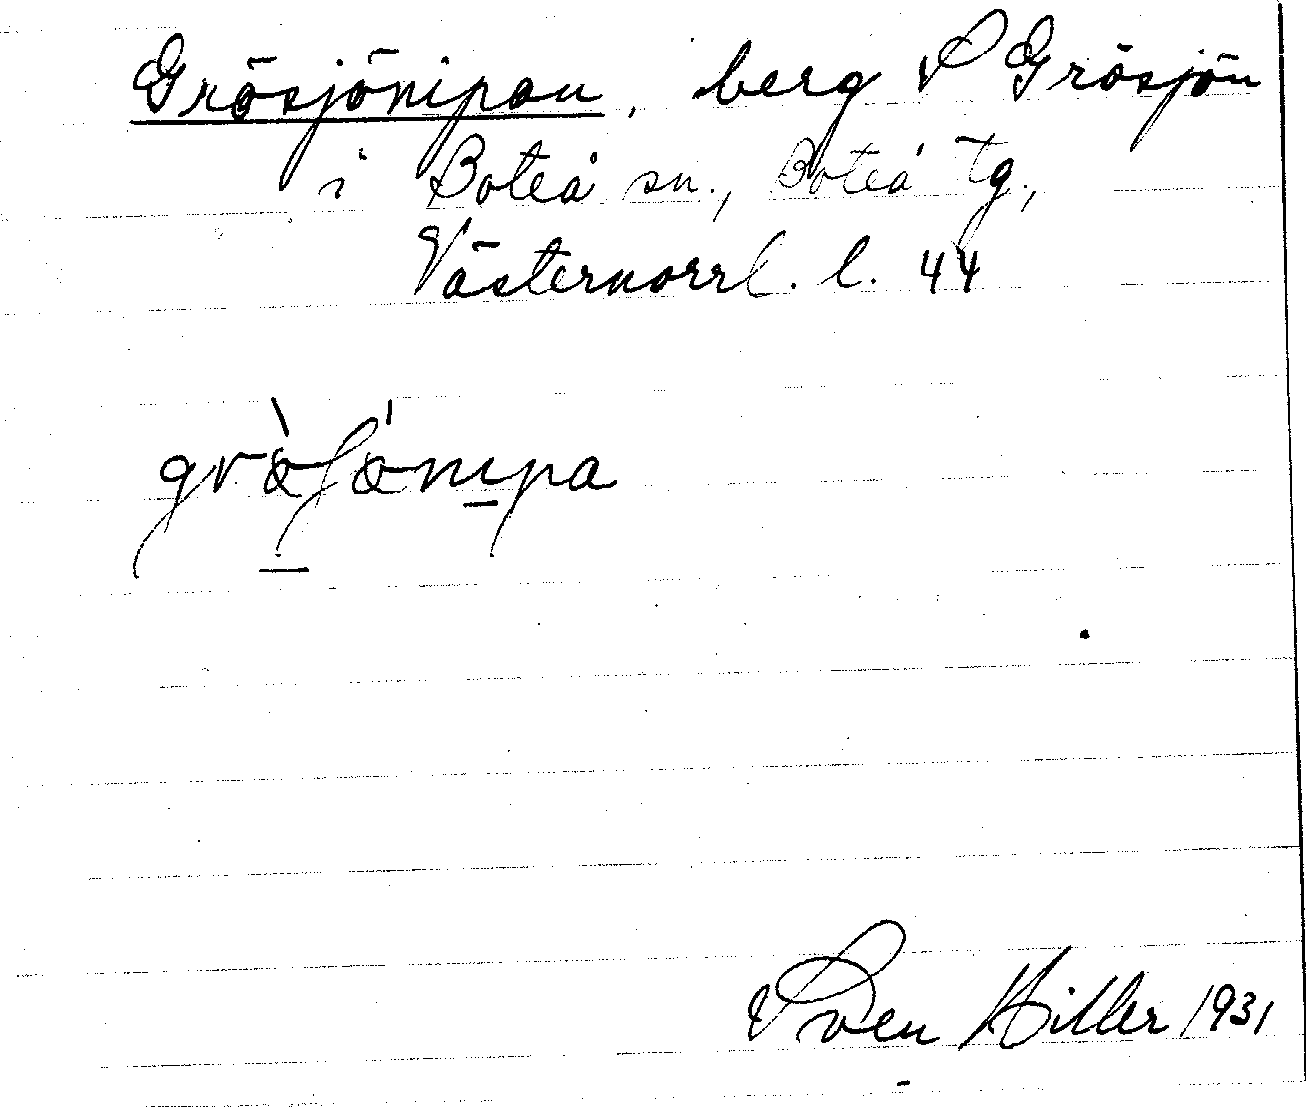 Gråsjönipan, berg S Gråsjön
i Boteå sn., Boteå tg.,
Västernorrl. l. 44
Sven Hiller 1931